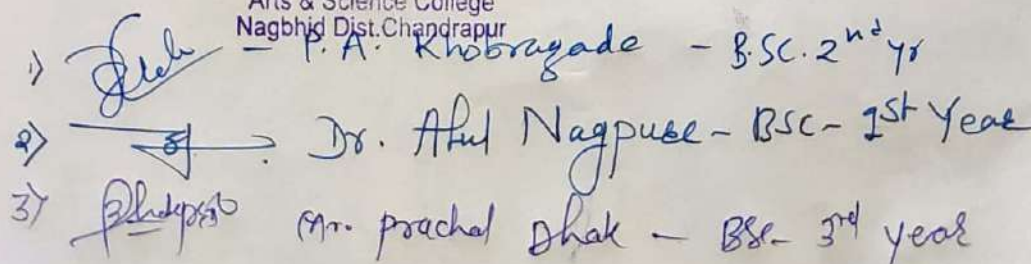 Arts & Science College
Nagbhid Dist.Chandrapur
1) - P.A. Khobragade - B.SC. 2nd yr
2) Dr. Atul Nagpuse - BSC - 1st Year
3) Mr. prachal Dhak - BSc - 3rd year